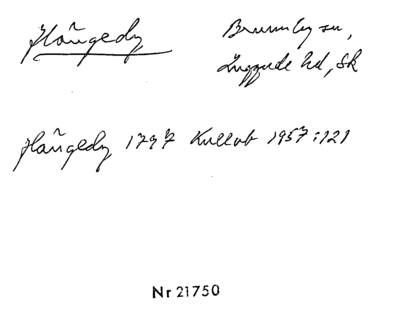 Hångedy
Brunnby sn,
Luggude hd, Sk
Hångedy 1797 Kullab 1957:121
Nr 21750